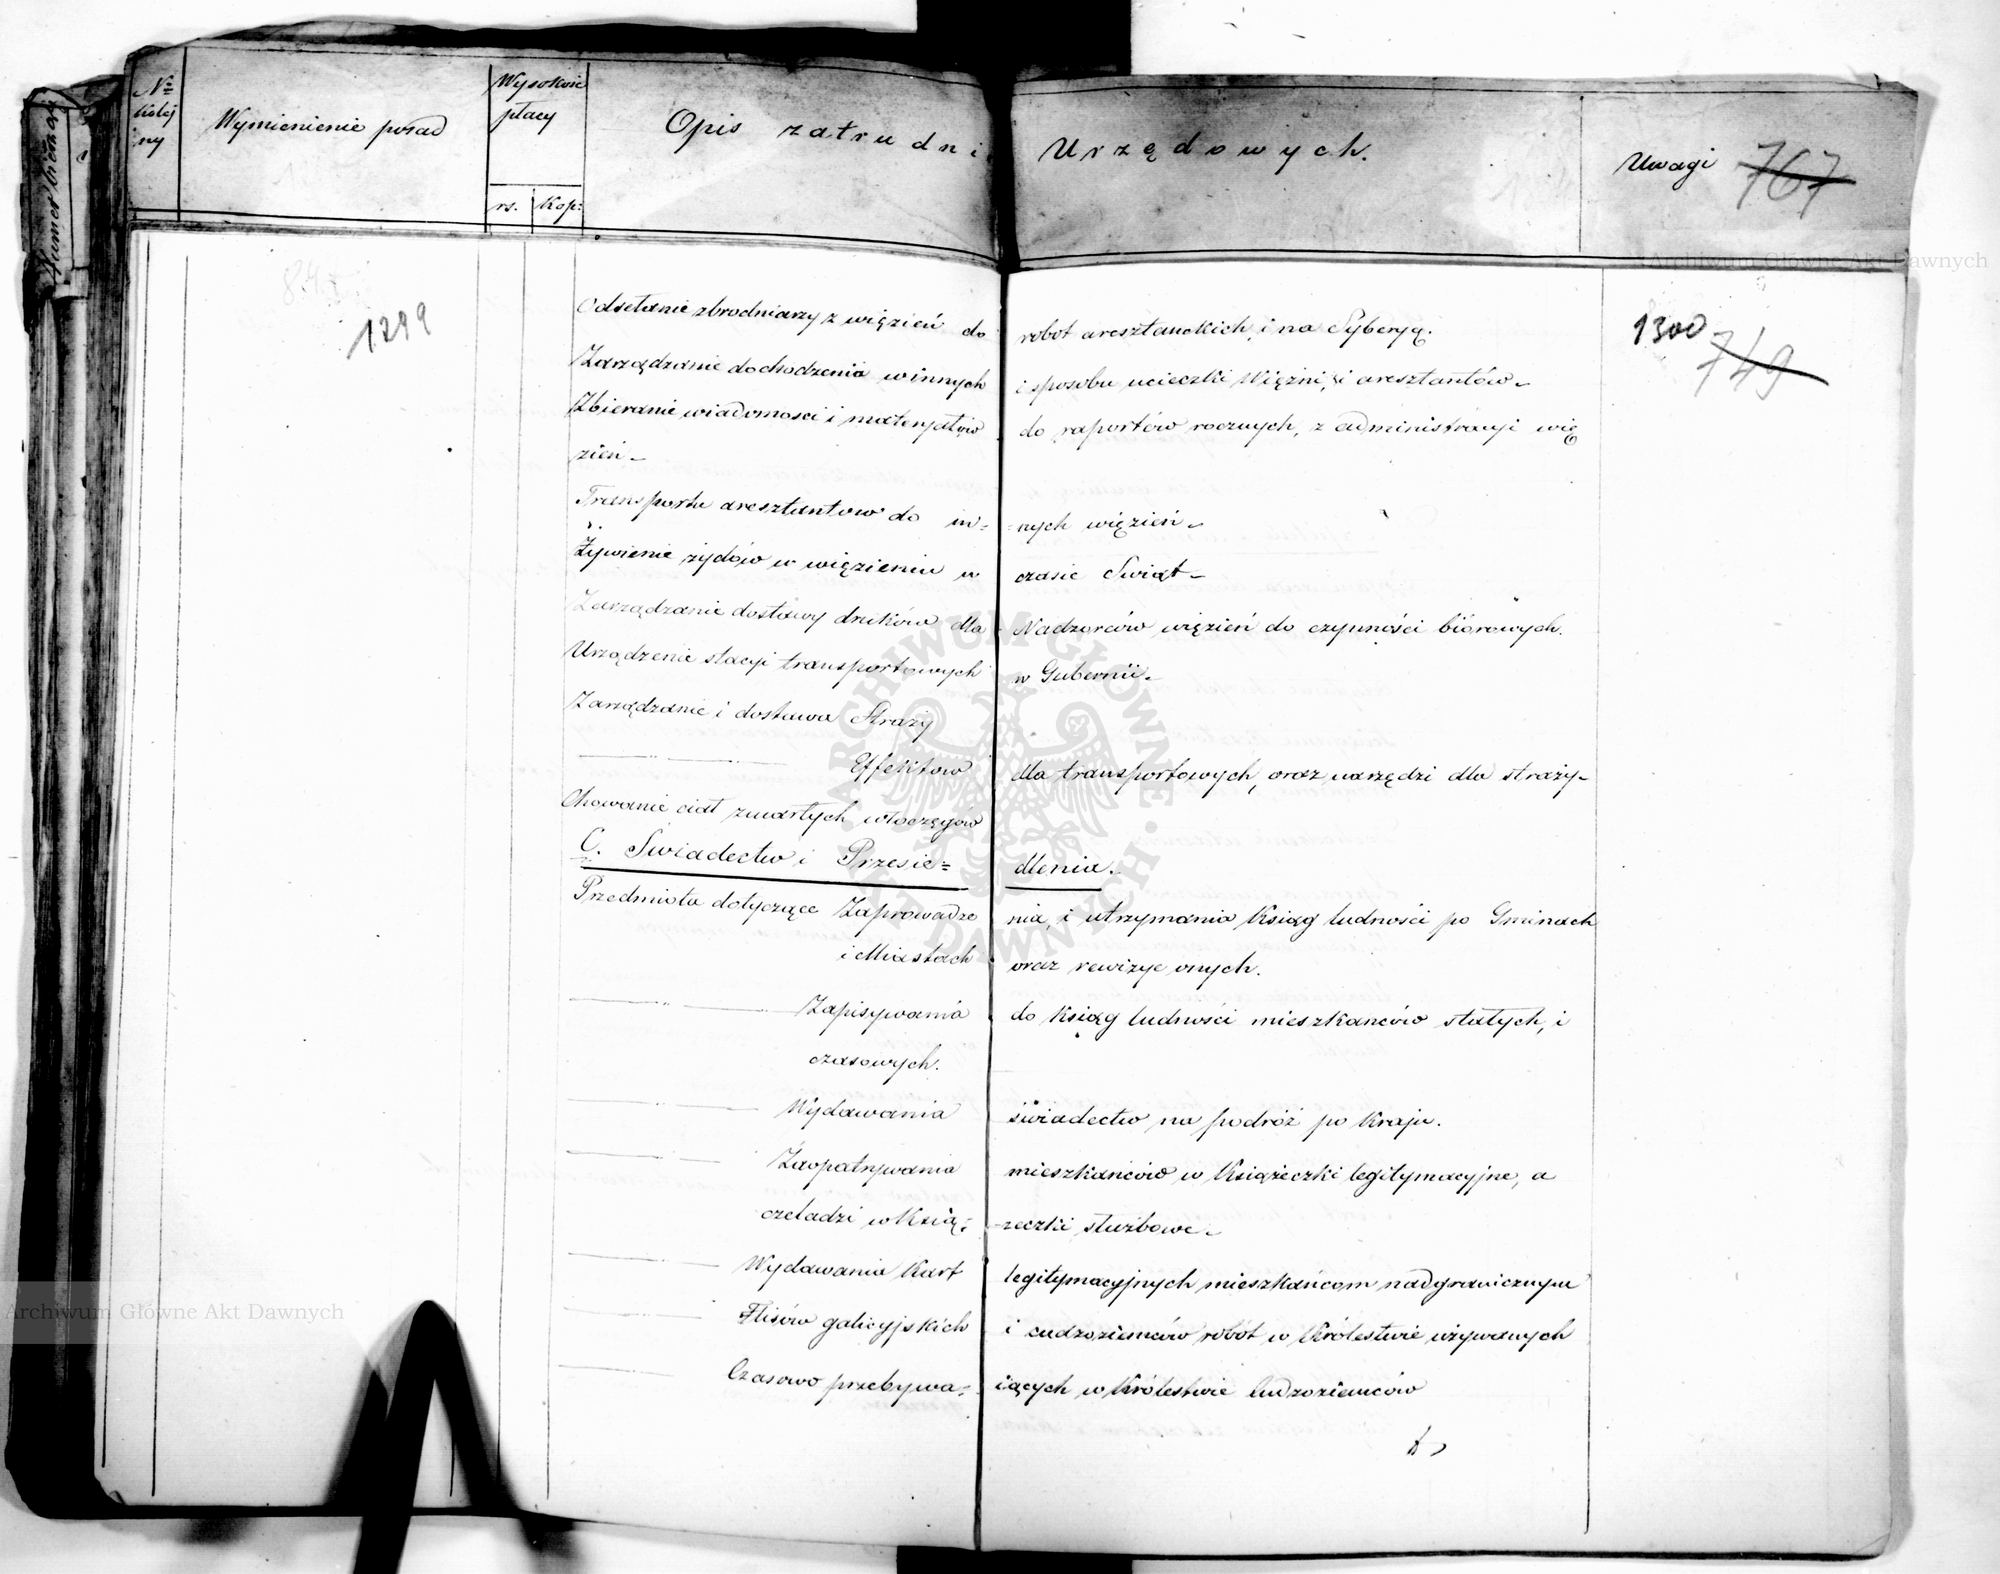 Nº kolejny
Wymienienie posad
Wysokość płacy
rs. Kop:
Opis zatrudni Urzędowych.
Uwagi 767
Numer bieżący
1299
1300
749
Odsełanie zbrodniarzy z więzień do robot aresztanckich, i na Syberyą.
Zarządzanie dochodzenia winnych i sposobu ucieczki Więźni, i aresztantów
Zbieranie wiadomości i materyałów do raportów rocznych, z administracyi wię
zień
Transportu aresztantow do in= =nych więzień
Żywienie żydów w więzieniu w czasie Swiąt
Zarządzanie dostawy druków dla Nadzorców więzień do czynności biórowych.
Urządzenie stacyi transportowych w Gubernii
Zarządzanie i dostawa Straży
Effektow dla transportowych, oraz narzędzi dla straży
Chowanie ciał zmarłych włoczęgów
C. Swiadectw i Przesie= dlenia.
Przedmiota dotyczące Zaprowadze nia, i utrzymania Ksiąg ludności po Gminach
i Miastach oraz rewizye onych.
Zapisywania do Ksiąg ludności mieszkańców stałych, i
czasowych.
Wydawania świadectw na podróż po Kraju.
Zaopatrywania mieszkańców w Książeczki legitymacyjne, a
czeladzi w Ksią= =zeczki służbowe
Wydawania Kart legitymacyjnych mieszkańcom nadgranicznym
Flisów galicyjskich i cudzoziemców robót w Królestwie używanych
Czasowo przebywa= iących w Królestwie Cudzoziemców
Archiwum Główne Akt Dawnych
Archiwum Główne Akt Dawnych
ARCHIWUM GŁÓWNE AKT DAWNYCH